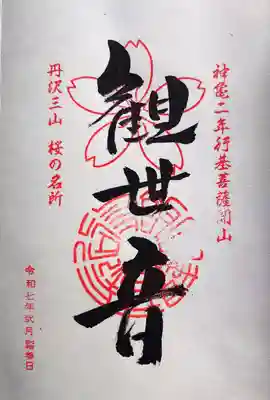 神亀二年行基菩薩開山
観世音
丹沢三山 桜の名所
令和七年弐月 日